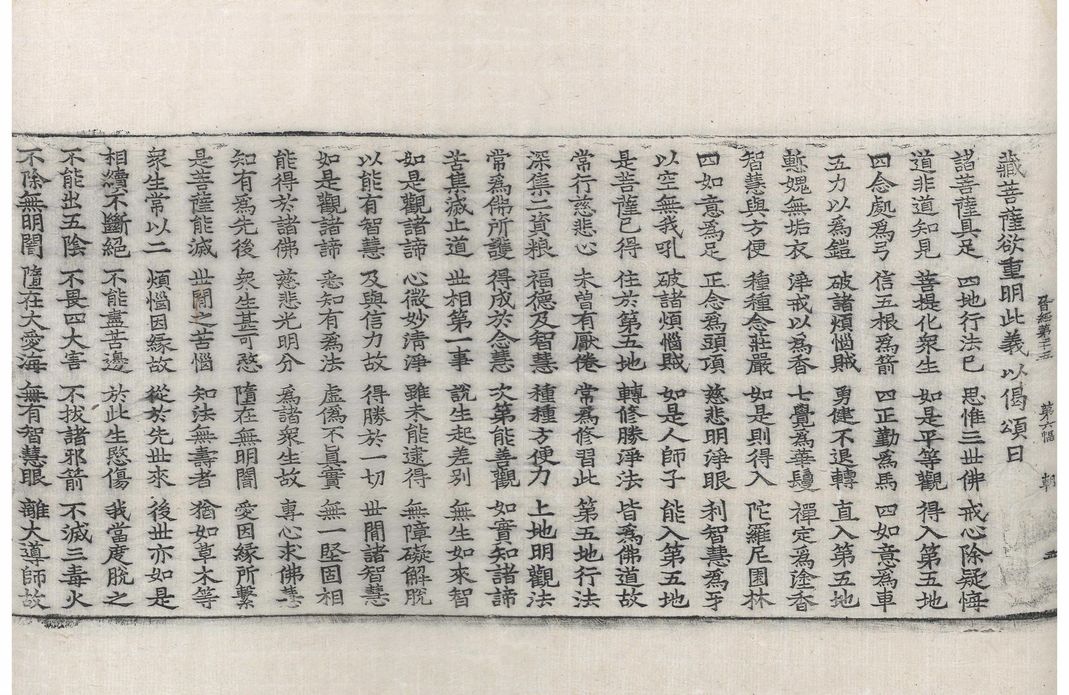 第六幅 朝 五
藏菩薩欲重明此義以偈頌曰
諸菩薩具足 四地行法已 思惟三世佛 戒心除疑悔
道非道知見 菩提化衆生 如是平等觀 得入第五地
四念處爲弓 信五根爲箭 四正勤爲馬 四如意爲車
五力以爲鎧 破諸煩惱賊 勇健不退轉 直入第五地
慙媿無垢衣 淨戒以爲香 七覺爲華鬘 禪定爲塗香
智慧與方便 種種念莊嚴 如是則得入 陀羅尼園林
四如意爲足 正念爲頭頂 慈悲明淨眼 利智慧爲牙
以空無我吼 破諸煩惱賊 如是人師子 能入第五地
是菩薩已得 住於第五地 轉修勝淨法 皆爲佛道故
常行慈悲心 未曽有厭倦 常爲修習此 第五地行法
深集二資粮 福德及智慧 種種方便力 上地明觀法
常爲佛所護 得成於念慧 次第能善觀 如實知諸諦
苦集滅止道 世相第一事 說生起差別 無生如來智
如是觀諸諦 心微妙清淨 雖未能逮得 無障礙解脫
以能有智慧 及與信力故 得勝於一切 世間諸智慧
如是觀諸諦 悉知有爲法 虛僞不眞實 無一堅固相
能得於諸佛 慈悲光明分 爲諸衆生故 專心求佛慧
知有爲先後 衆生甚可愍 隨在無明闇 愛因緣所繫
是菩薩能滅 世間之苦惱 知法無壽者 猶如草木等
衆生常以二 煩惱因緣故 從於先世來 後世亦如是
相續不斷絕 不能盡苦邊 於此生愍傷 我當度脫之
不能出五陰 不畏四大害 不拔諸邪箭 不滅三毒火
不除無明闇 隨在大愛海 無有智慧眼 離大導師故